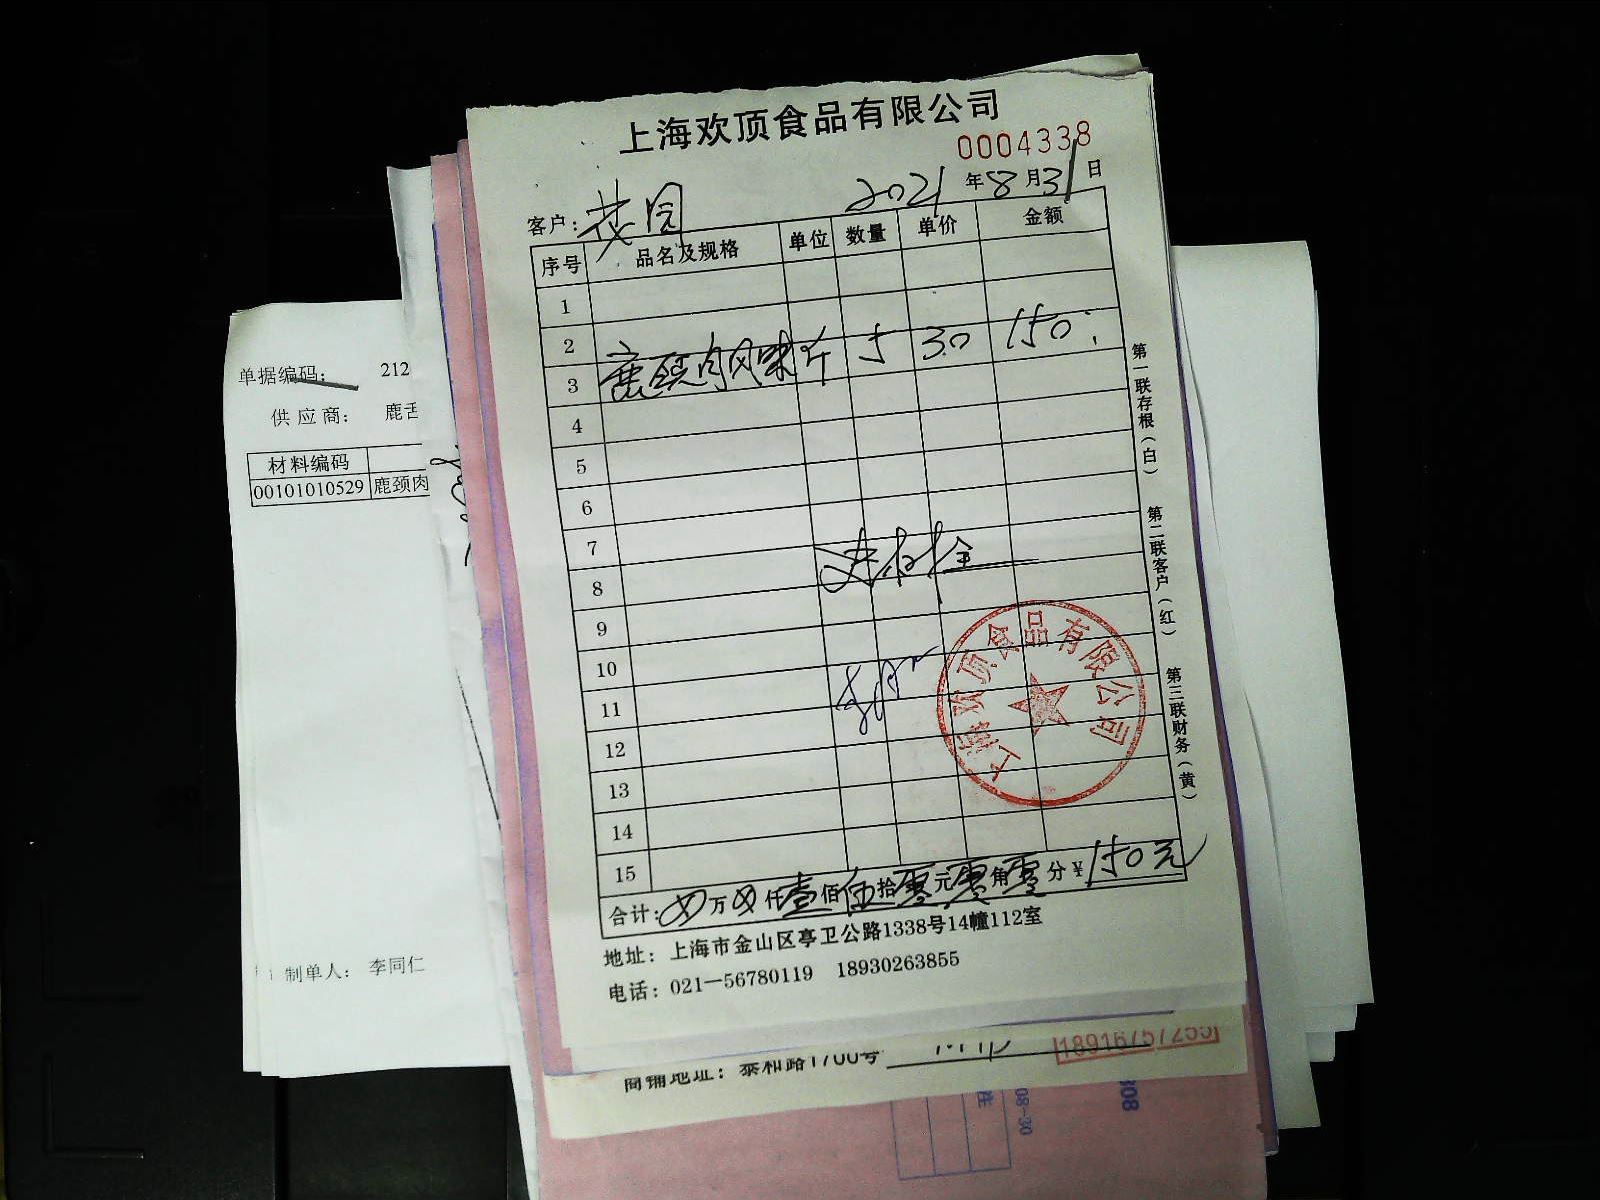 上海欢顶食品有限公司
0004338
2021年8月31日
客户：茂园
序号 品名及规格 单位 数量 单价 金额
1
2
3 鹿颈肉风味 斤 5 30 150
4
5
6
7
8
9
10
11
12
13
14
15
合计： 万 仟壹佰伍拾零元零角零分￥150元
地址：上海市金山区亭卫公路1338号14幢112室
电话：021—56780119 18930263855
第一联存根（白）
第二联客户（红）
第三联财务（黄）
上海欢顶食品有限公司
单据编码： 212
供应商： 鹿舌
材料编码
00101010529 鹿颈肉
制单人： 李同仁
18916757255
商铺地址：泰和路1700号
08-30
808